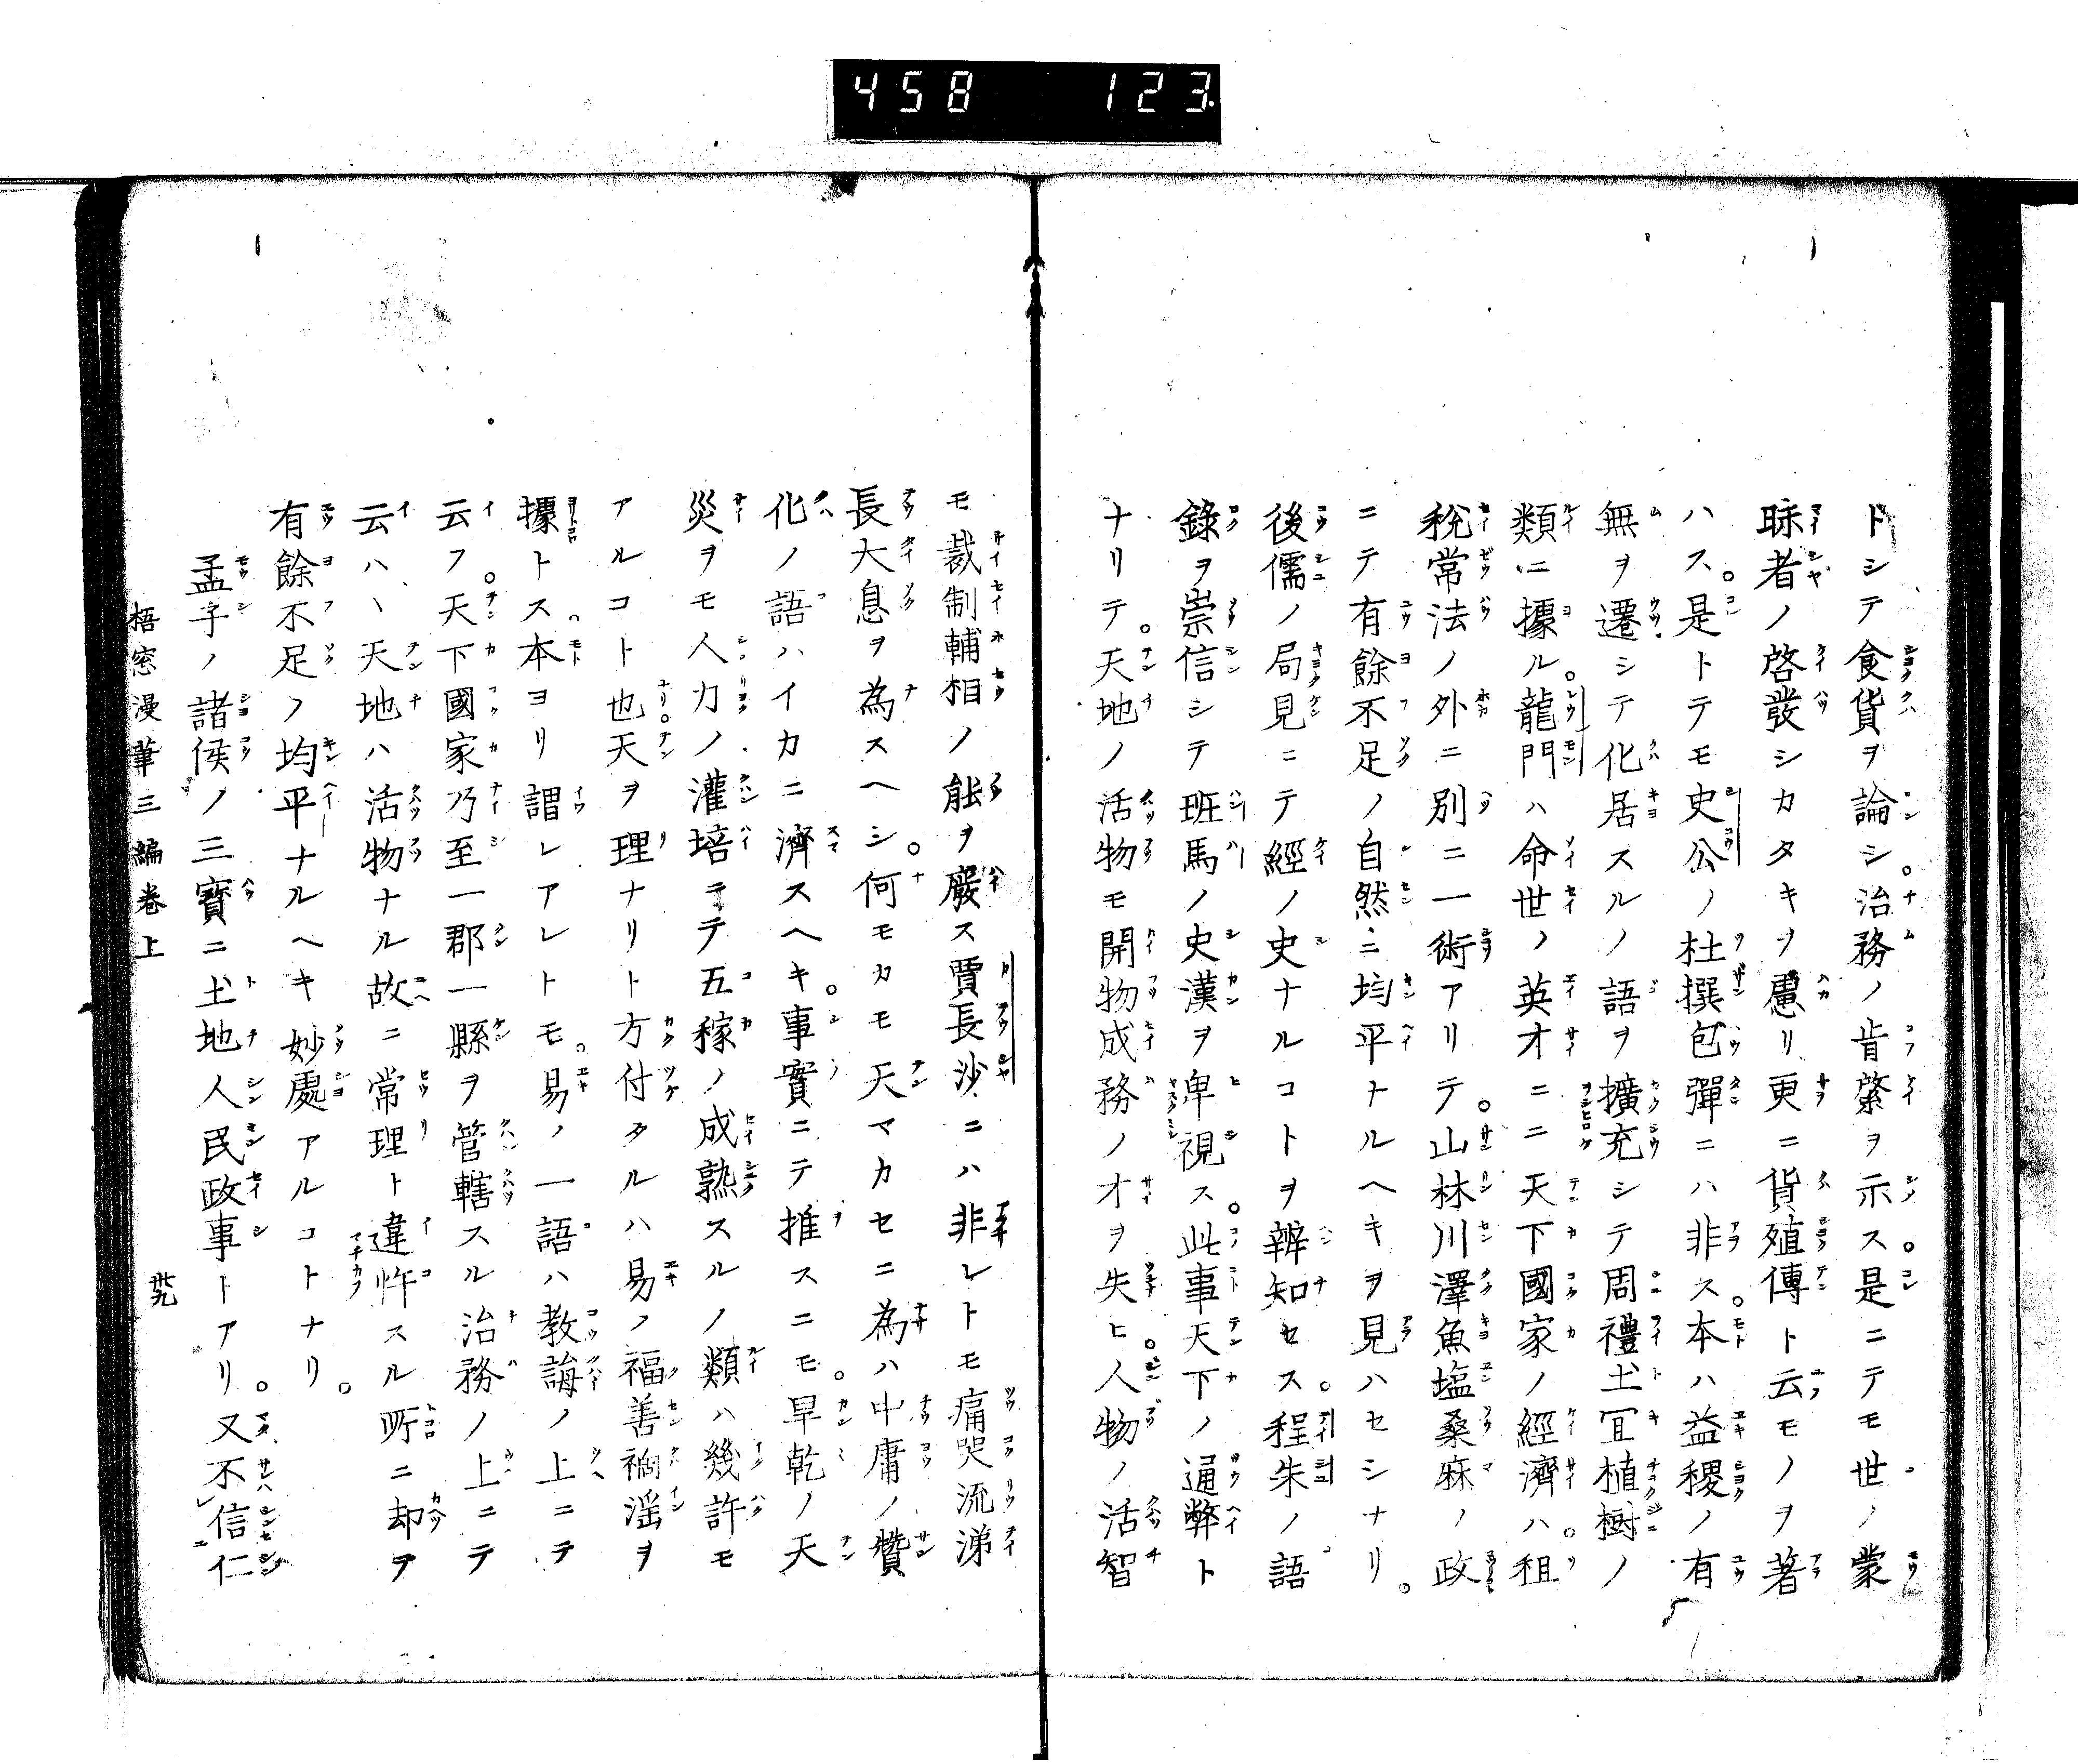 458 123
トシテ食貨ヲ論シ。治務ノ肯綮ヲ示ス。是ニテモ世ノ蒙
昧者ノ啓發シカタキヲ慮リ更ニ貨殖傳ト云モノヲ著
ハス。是トテモ史公ノ杜撰包彈ニハ非ス。本ハ益稷ノ有
無ヲ遷シテ化居スルノ語ヲ擴充シテ周禮土宜植樹ノ
類ニ據ル。龍門ハ命世ノ英才ニテ天下國家ノ經濟ハ。租
稅常法ノ外ニ別ニ一術アリテ。山林川澤魚塩桑麻ノ政
ニテ有餘不足ノ自然ニ均平ナルヘキヲ見ハセシナリ。
後儒ノ局見ニテ經ノ史ナルコトヲ辨知セス。程朱ノ語
錄ヲ崇信シテ班馬ノ史漢ヲ卑視ス。此事天下ノ通弊ト
ナリテ。天地ノ活物モ開物成務ノ才ヲ失ヒ。人物ノ活智
モ裁制輔相ノ能ヲ廢ス賈長沙ニハ非レトモ痛哭流涕
長大息ヲ為スヘシ。何モカモ天マカセニ為ハ中庸ノ贊
化ノ語ハイカニ濟スヘキ。事實ニテ推スニモ。旱乾ノ天
災ヲモ人力ノ灌培ニテ五稼ノ成熟スルノ類ハ幾許モ
アルコト也。天ヲ理ナリト方付タルハ易ノ福善禍淫ヲ
據トス。本ヨリ謂レアレトモ。易ノ一語ハ教誨ノ上ニテ
云フ。天下國家乃至一郡一縣ヲ管轄スル治務ノ上ニテ
云ハヽ天地ハ活物ナル故ニ常理ト違忤スル所ニ却テ
有餘不足ノ均平ナルヘキ妙處アルコトナリ。
孟子ノ諸侯ノ三寶ニ土地人民政事トアリ。又不信仁
梧窓漫筆三編卷上